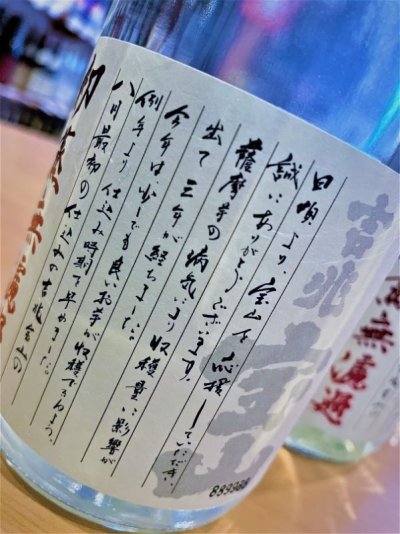 日頃より、宝山を応援していただき、
誠にありがとうございます。
薩摩芋の病気により収穫量に影響が
出て三年が経ちました。
今年は少しでも良いお芋が収穫できるよう、
例年より仕込み時期を早めました。
八月最初の仕込みの吉兆宝山の
吉兆
宝山
889988
無濾過